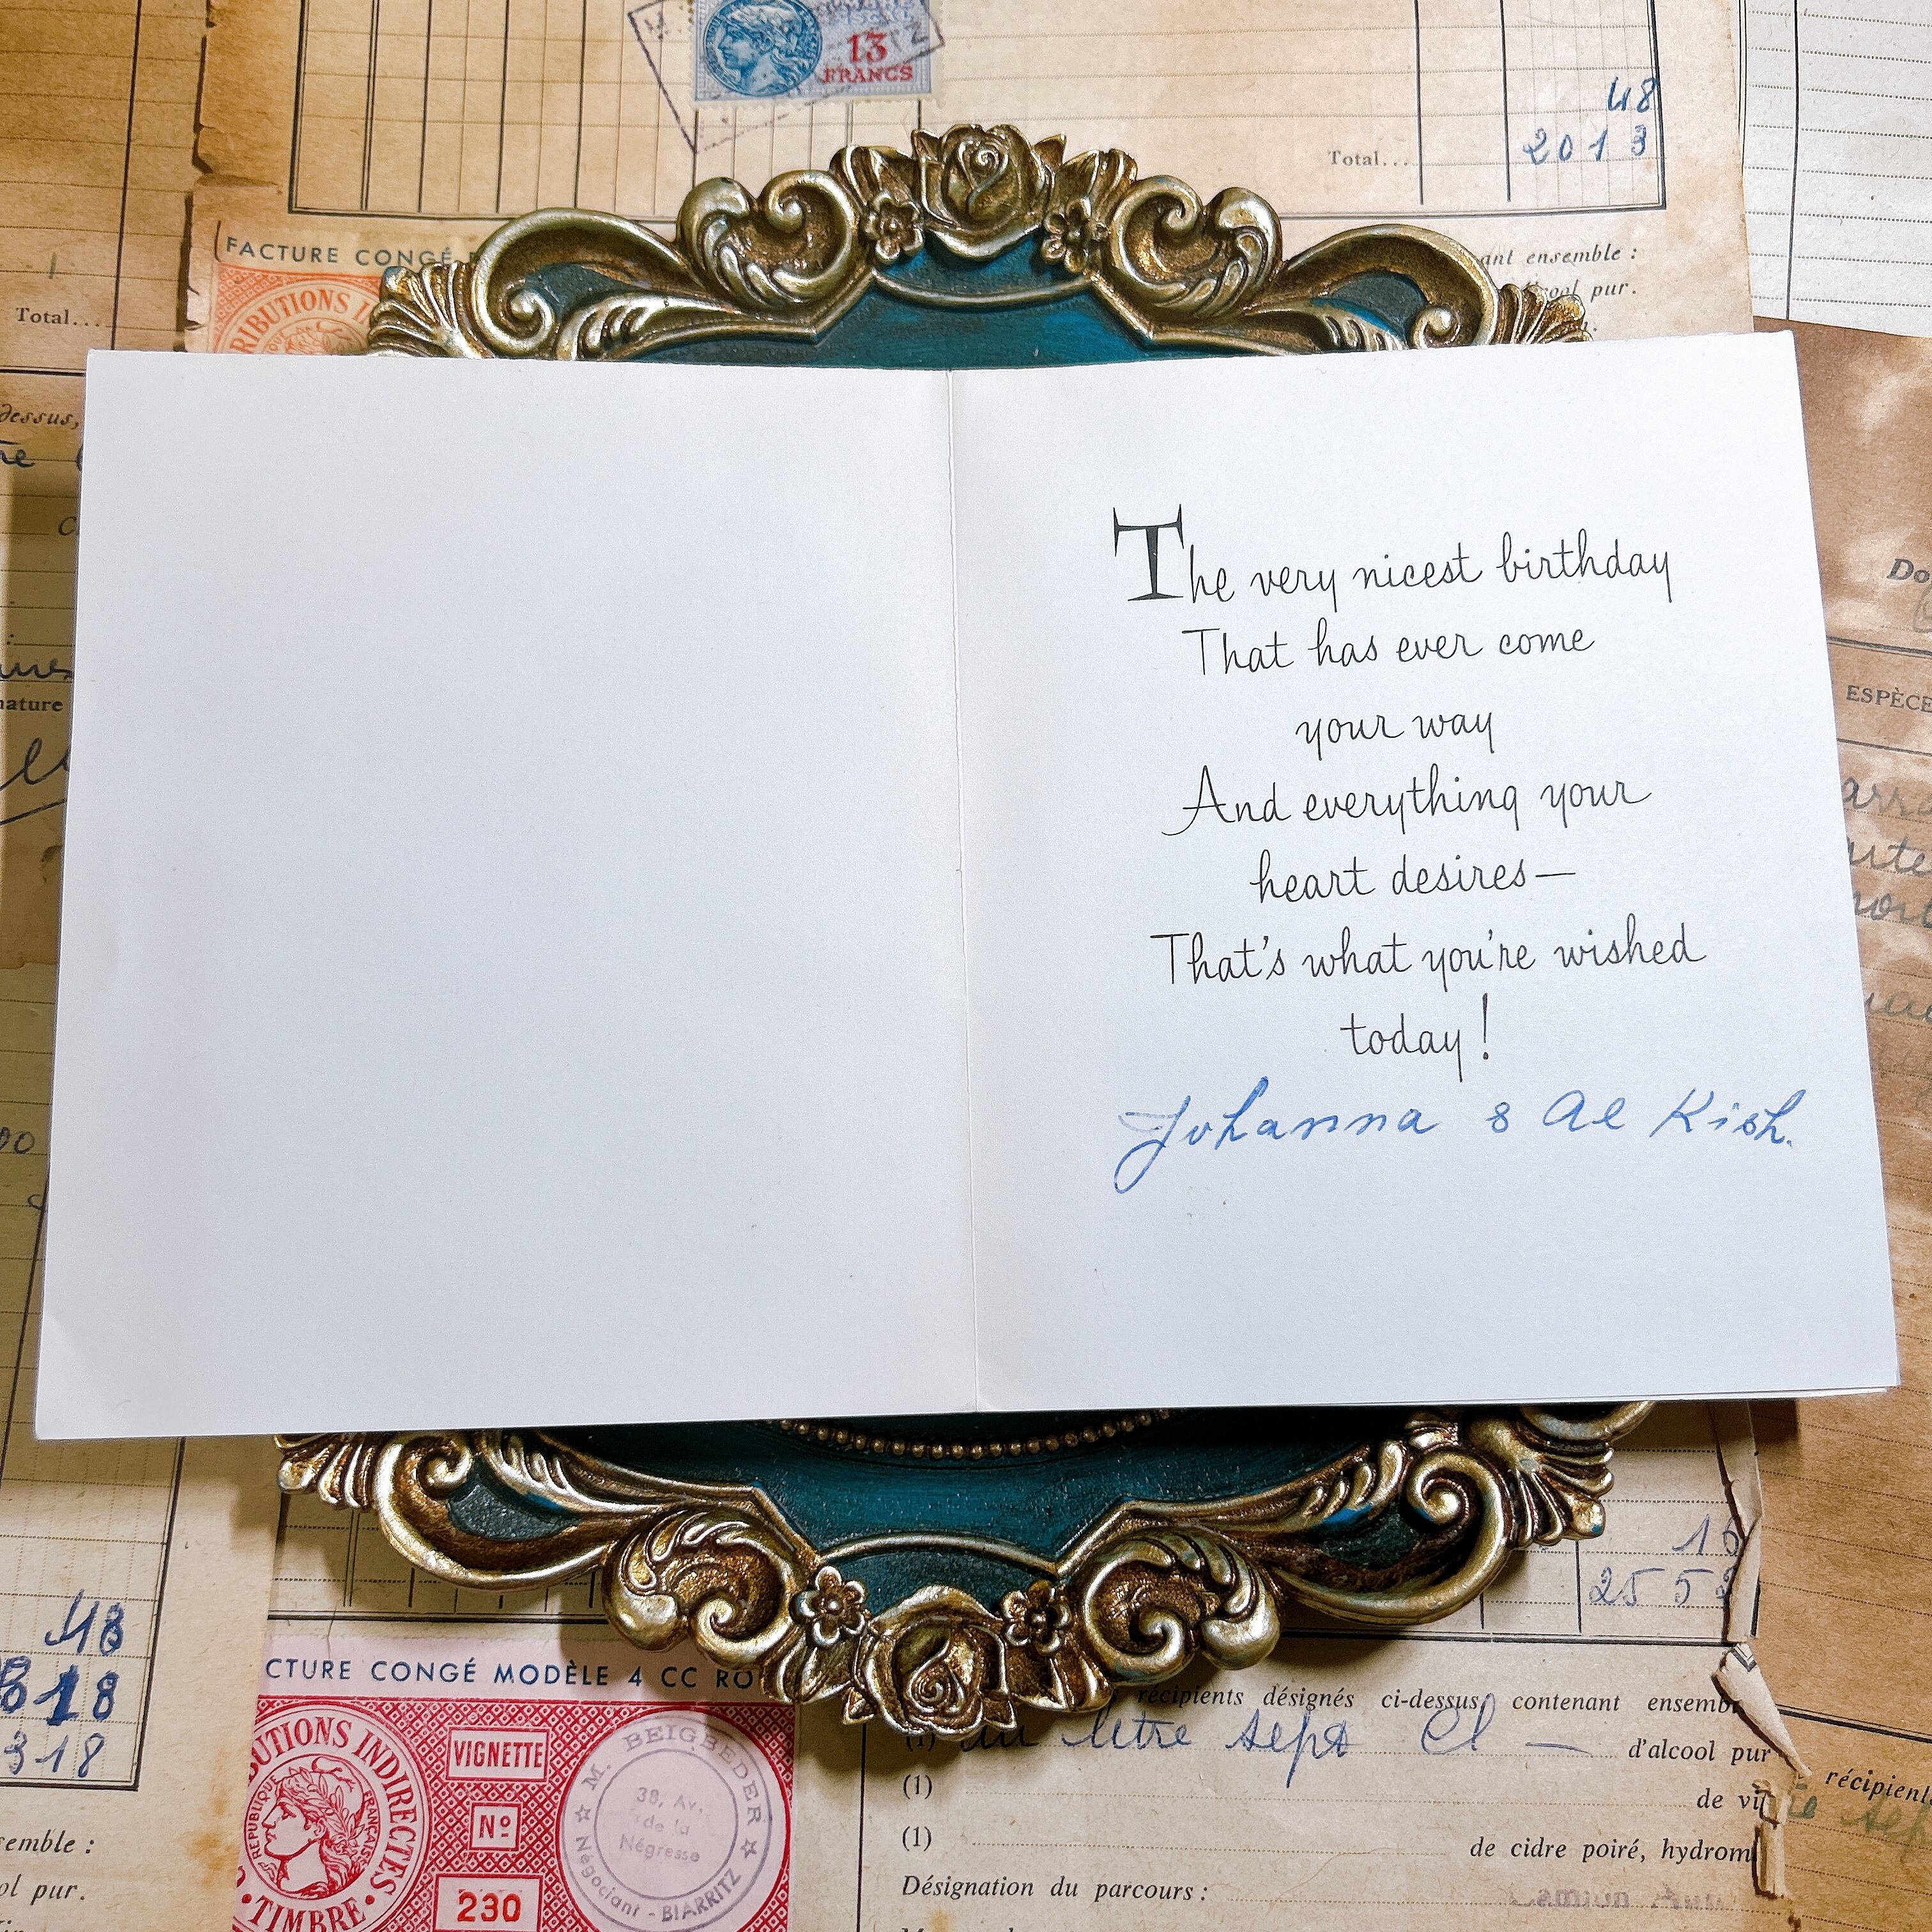 13
FRANCS
48
Total...
2013
FACTURE CONGÉ
RIBUTIONS I
ant ensemble :
cool pur.
Total....
dessus,
The very nicest birthday
That has ever come
your way
And everything your
heart desires—
That's what you're wished
today!
Johanna & Al Kish.
Do
ESPÈCE
nature
48
318
16
CTURE CONGÉ MODÈLE 4 CC RO
BUTIONS INDIRECTES
RÉPUBLIQUE FRANÇAISE
TIMBRE
VIGNETTE
Nº
230
M. BEIGBEDER
38, Av.
de la
Négresse
Négociant - BIARRITZ
récipients désignés ci-dessus, contenant ensemb
(1) un litre sept cl — d'alcool pur
(1) de vi
(1) de cidre poiré, hydrom
Désignation du parcours :
récipients
semble :
ol pur.